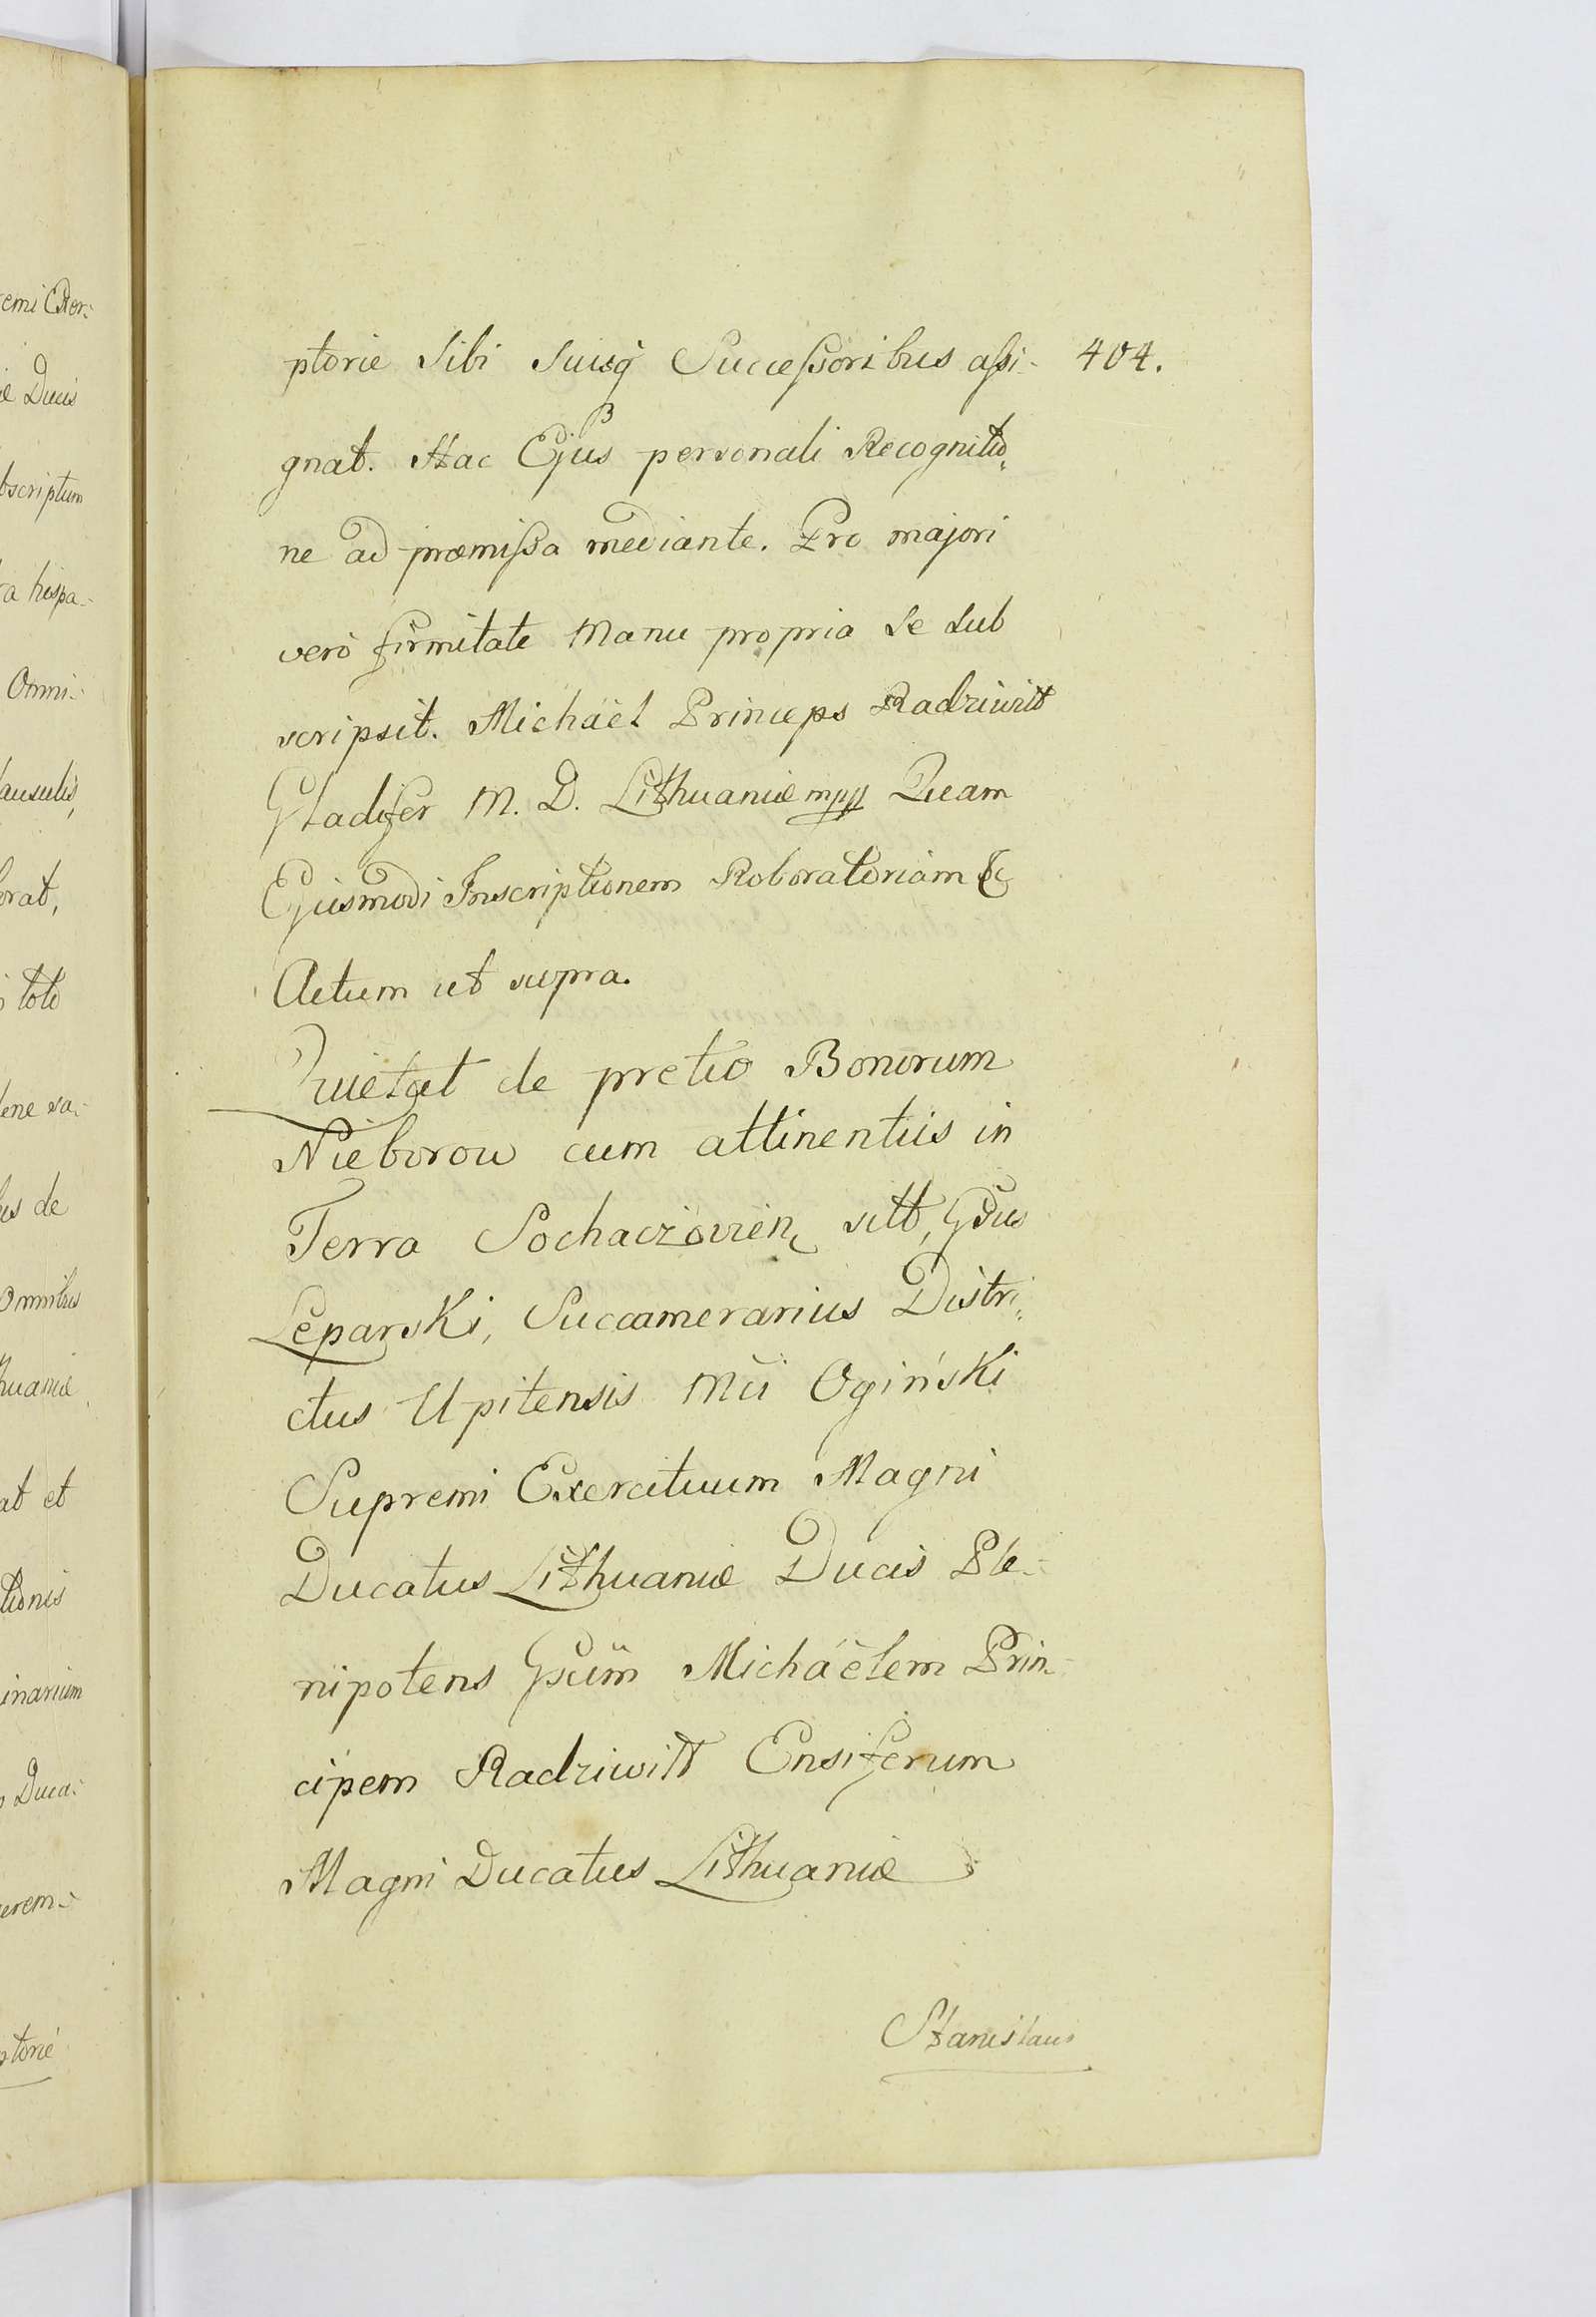 emi Exer-
æ Ducis
bscriptum
ra hispa-
Omni-
lausulis,
erat,
toto
lene va-
us de
Omnibus
huaniæ
at et
tionis
inarium
Duca-
erem-
ptorie
ptorie Sibi Suisq̃ Succeſsoribus aſsi- 404.
gnat. Hac Ejus personali Recognitio-
ne ad præmiſsa mediante. Pro majori
verò firmitate Manu propria Se Sub
scripsit. Michäel Princeps Radziwiłł
Gladifer M. D. Lithuaniæ mpp Quam
Ejusmodi Inscriptionem Roboratoriam &
Actum ut supra.
Quietat de pretio Bonorum
Nieborow cum attinentiis in
Terra Sochaczovien sitt, Gsus
Leparski, Succamerarius Distri-
ctus Upitensis Mci Ogiński
Supremi Exercituum Magni
Ducatus Lithuaniæ Ducis Ple-
nipotens Gsum Michäelem Prin-
cipem Radziwiłł Ensiferum
Magni Ducatus Lithuaniæ
Stanislaus